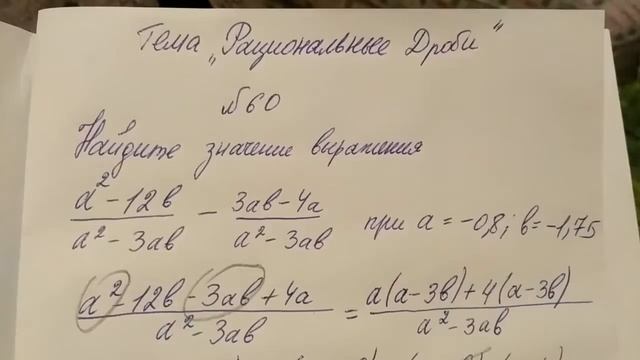 Тема „Рациональные Дроби“
№60
Найдите значение выражения
a² - 12b / a² - 3ab - 3ab - 4a / a² - 3ab при a = -0,8; b = -1,75
a² - 12b - 3ab + 4a / a² - 3ab = a(a - 3b) + 4(a - 3b) / a² - 3ab